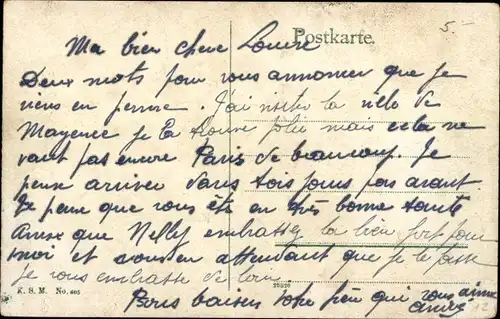 5-
Postkarte.
Ma bien chere Louise
Deux mots pour vous annoncer que je
viens en perme. J'ai visiter la ville de
Mayence je la trouve jolie mais cela ne
vaut pas encore Paris de beaucoup. Je
peux arriver dans trois jours pas avant.
Je pense que vous êtes en très bonne santé
ainsi que Nelly embrassez la bien fort pour
moi et vous en attendant que je le fasse
je vous embrasse de loin.
Bons baisers votre frère qui vous aime
André
K. S. M. No. 805